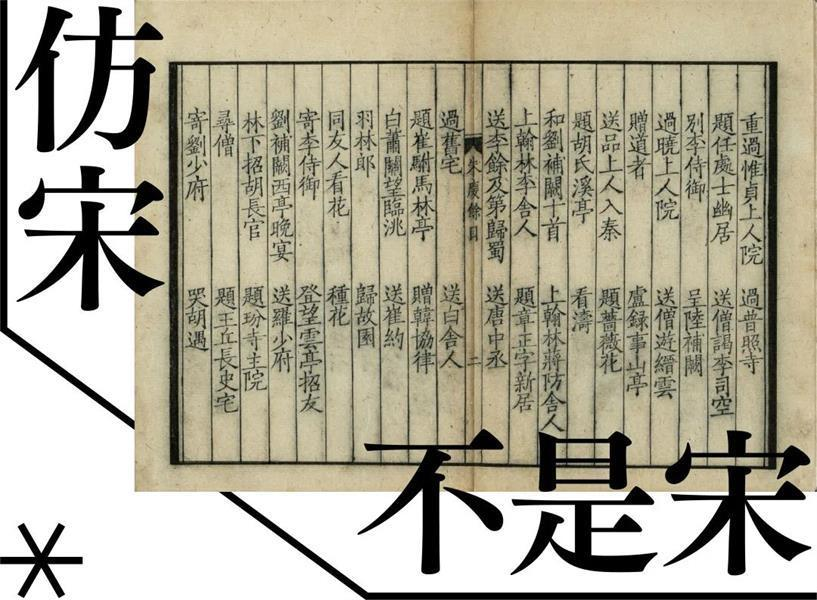 仿宋
不是宋
重過惟貞上人院　過普照寺
題任處士幽居　送僧謁李司空
別李侍御　呈陸補闕
過曉上人院　送僧遊縉雲
贈道者　盧錄事山亭
送品上人入秦　題薔薇花
題胡氏溪亭　看濤
和劉補闕十首　上翰林蔣防舍人
上翰林李舍人　題章正字新居
送李餘及第歸蜀　送唐中丞
朱慶餘目　二
過舊宅　送白舍人
題崔駙馬林亭　贈韓協律
白蕭關望臨洮　送崔約
羽林郎　歸故園
同友人看花　種花
寄李侍御　登望雲亭招友
劉補闕西亭晚宴　送羅少府
林下招胡長官　題玢寺主院
尋僧　題王丘長史宅
寄劉少府　哭胡遇